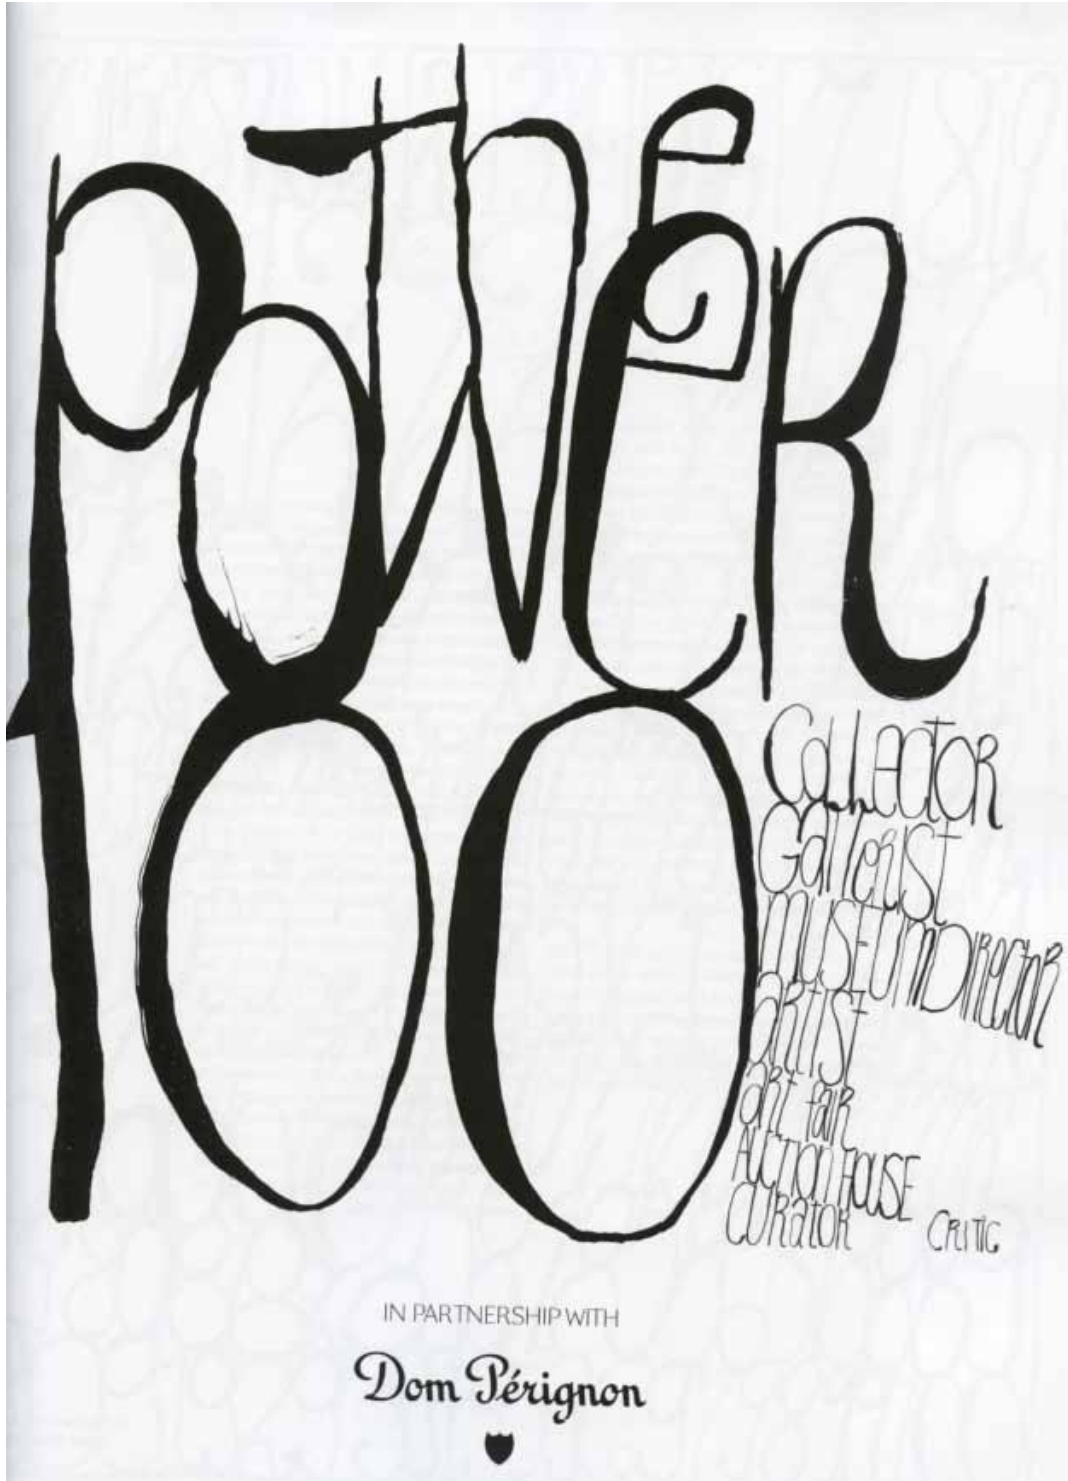 The
POWER
100
Collector
Gallerist
museum Director
artist
art fair
AUCTION HOUSE
CURATOR CRITIC
IN PARTNERSHIP WITH
Dom Pérignon